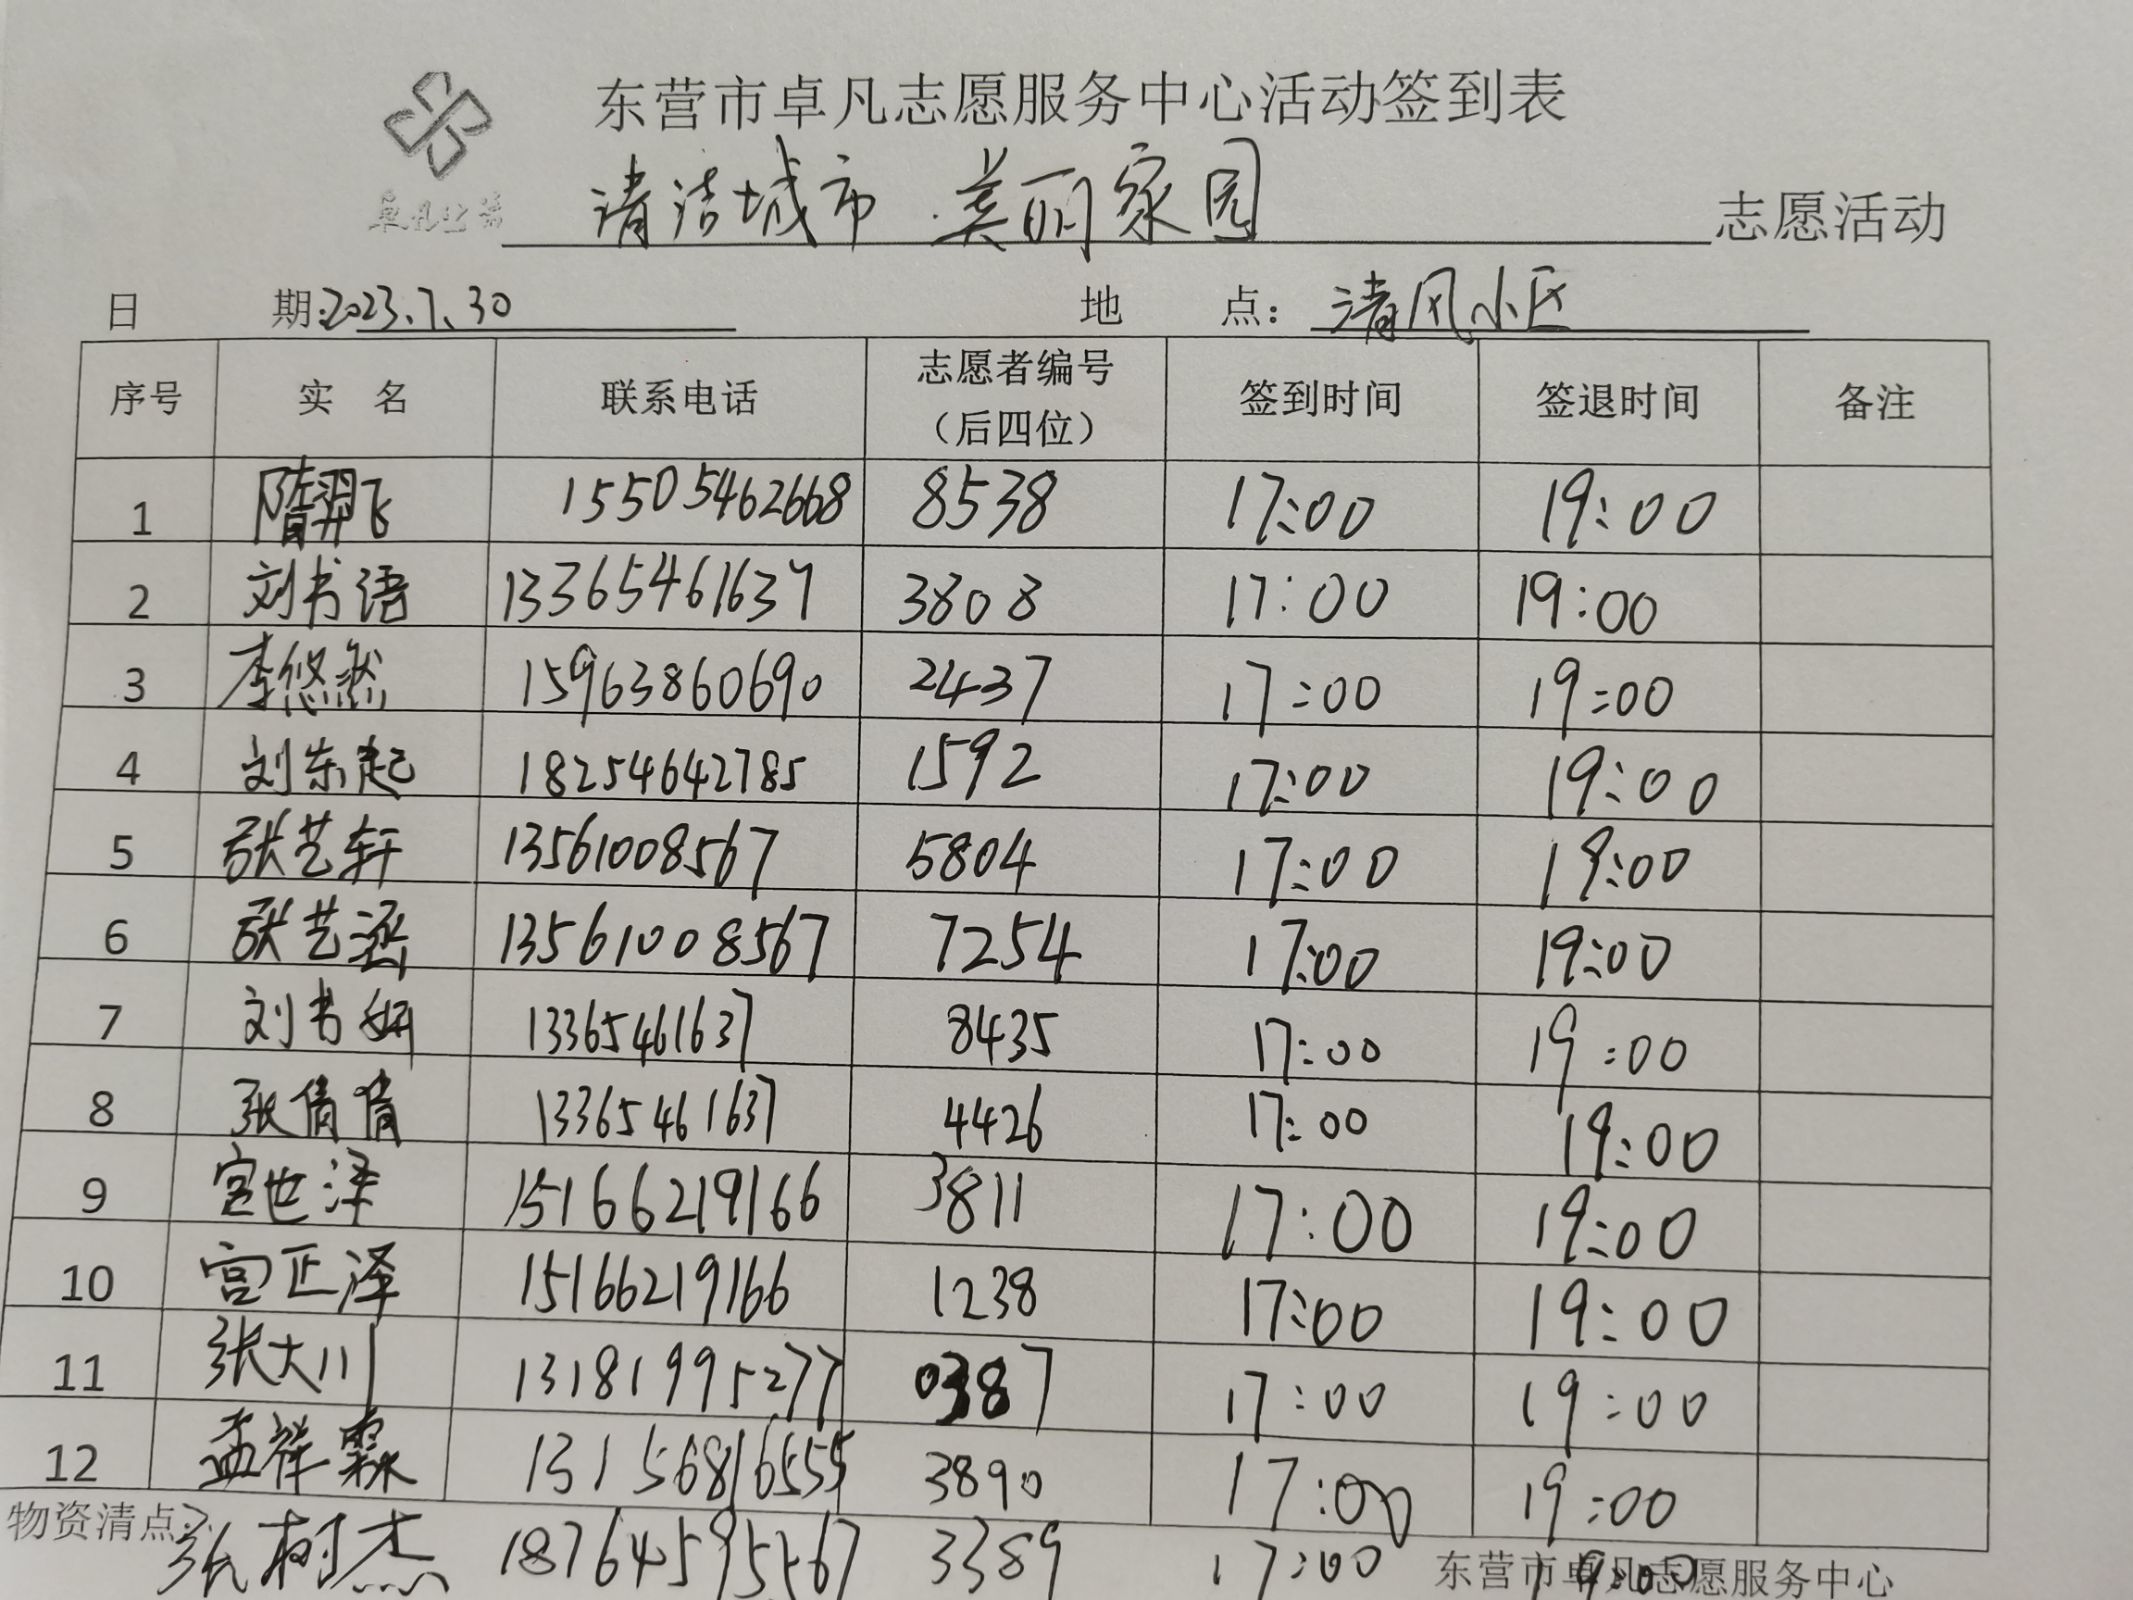 东营市卓凡志愿服务中心活动签到表
卓凡公益
清洁城市 美丽家园 志愿活动
日 期:2023.7.30 地 点：清风小区
序号 实 名 联系电话 志愿者编号（后四位） 签到时间 签退时间 备注
1 隋羿飞 15505462668 8538 17:00 19:00
2 刘书语 13365461637 3808 17:00 19:00
3 李悠然 15963860690 2437 17:00 19:00
4 刘东起 18254642785 1592 17:00 19:00
5 张艺轩 13561008567 5804 17:00 19:00
6 张艺涵 13561008567 7254 17:00 19:00
7 刘书妍 13365461637 8435 17:00 19:00
8 张倩倩 13365461637 4426 17:00 19:00
9 宫世泽 15166219166 3811 17:00 19:00
10 宫正泽 15166219166 1238 17:00 19:00
11 张大川 13181995277 0387 17:00 19:00
12 孟祥霖 13156816555 3890 17:00 19:00
物资清点：
张树杰 18764595567 3389 17:00 19:00
东营市卓凡志愿服务中心